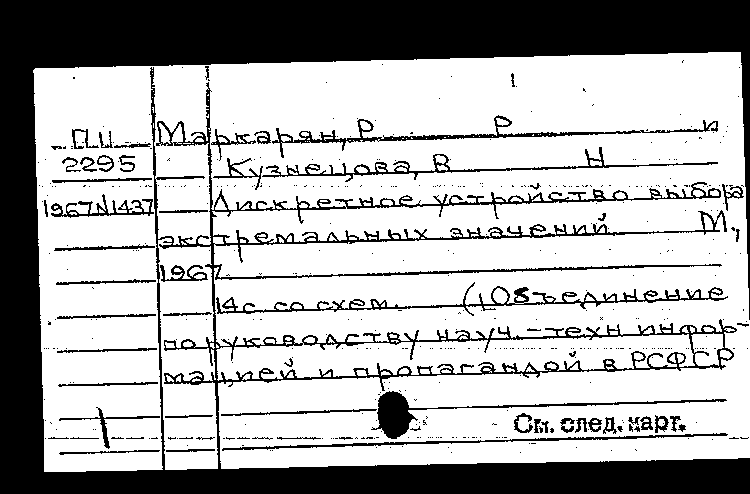 1
ПИ Маркарян, Р Р и
2295 Кузнецова, В Н
1967N1437 Дискретное устройство выбора
экстремальных значений М.,
1967
14с со схем. (1Объединение
по руководству науч.-техн инфор-
мацией и пропагандой в РСФСР
См. след. карт.